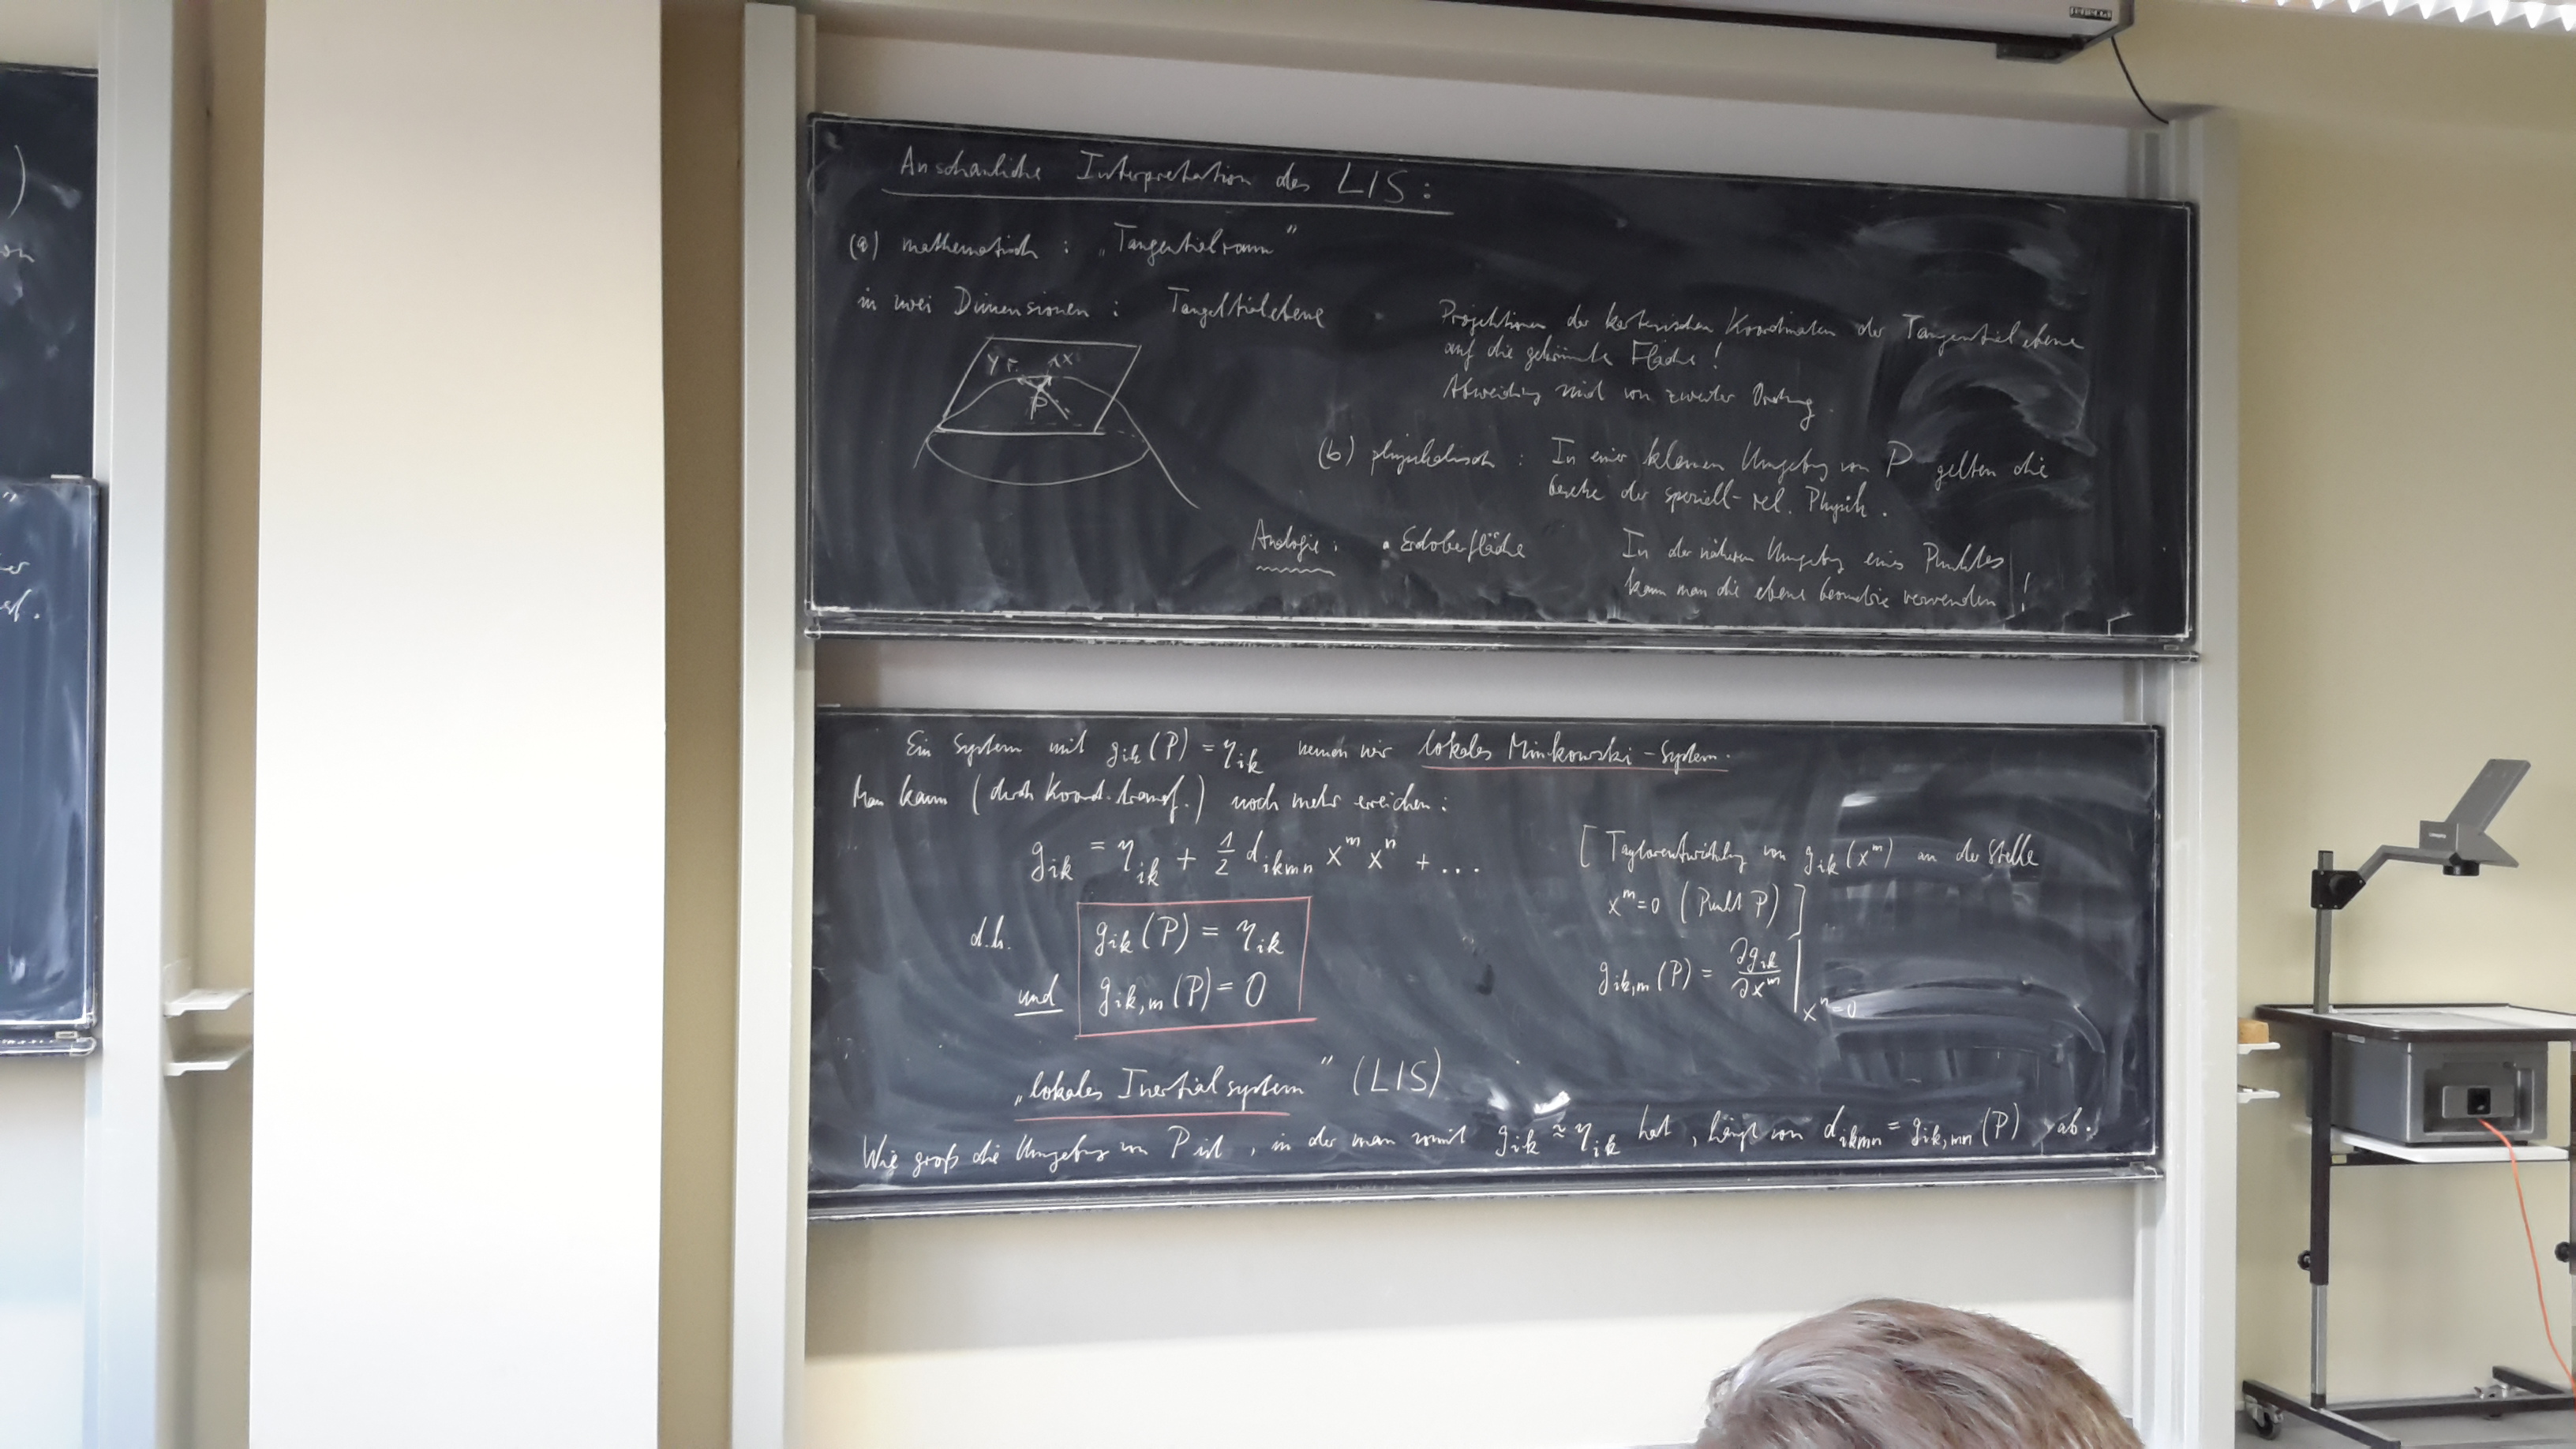 Anschauliche Interpretation des LIS:
(a) mathematisch : „Tangentialraum"
in zwei Dimensionen : Tangentialebene
y x
P
Projektionen der kartesischen Koordinaten der Tangentialebene
auf die gekrümmte Fläche!
Abweichung sind von zweiter Ordnung.
(b) physikalisch : In einer kleinen Umgebung von P gelten die
Gesetze der speziell-rel. Physik.
Analogie: • Erdoberfläche
In der näheren Umgebung eines Punktes
kann man die ebene Geometrie verwenden!
Ein System mit g_ik(P) = η_ik nennen wir lokales Minkowski-System.
Man kann (durch Koord.transf.) noch mehr erreichen:
g_ik = η_ik + 1/2 d_ikmn x^m x^n + ...
d.h. g_ik(P) = η_ik
und g_ik,m(P) = 0
[Taylorentwicklung von g_ik(x^m) an der Stelle
x^m=0 (Punkt P)]
g_ik,m(P) = ∂g_ik/∂x^m |_x^n=0
„lokales Inertialsystem" (LIS)
Wie groß die Umgebung von P ist, in der man somit g_ik ≈ η_ik hat, hängt von d_ikmn = g_ik,mn(P) ab.